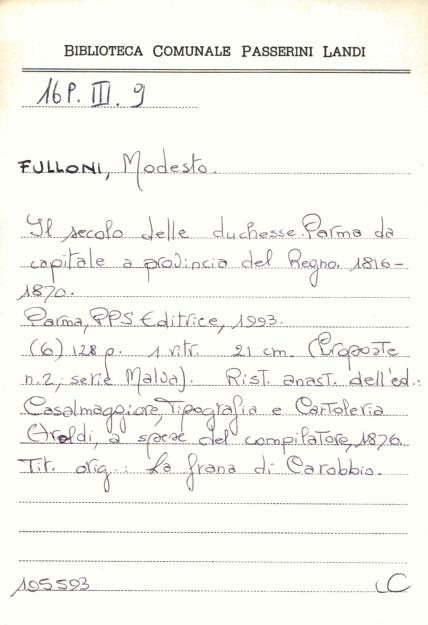 BIBLIOTECA COMUNALE PASSERINI LANDI
16 P. III. 9
FULLONI, Modesto.
Il secolo delle duchesse. Parma da
capitale a provincia del Regno. 1816-
1870.
Parma, PPS Editrice, 1993.
(6) 128 p. 1 ritr. 21 cm. (Proposte
n.2, serie Malva). Rist. anast. dell'ed.:
Casalmaggiore, Tipografia e Cartoleria
Aroldi, a spese del compilatore, 1876.
Tit. orig.: La frana di Carobbio.
195593
C